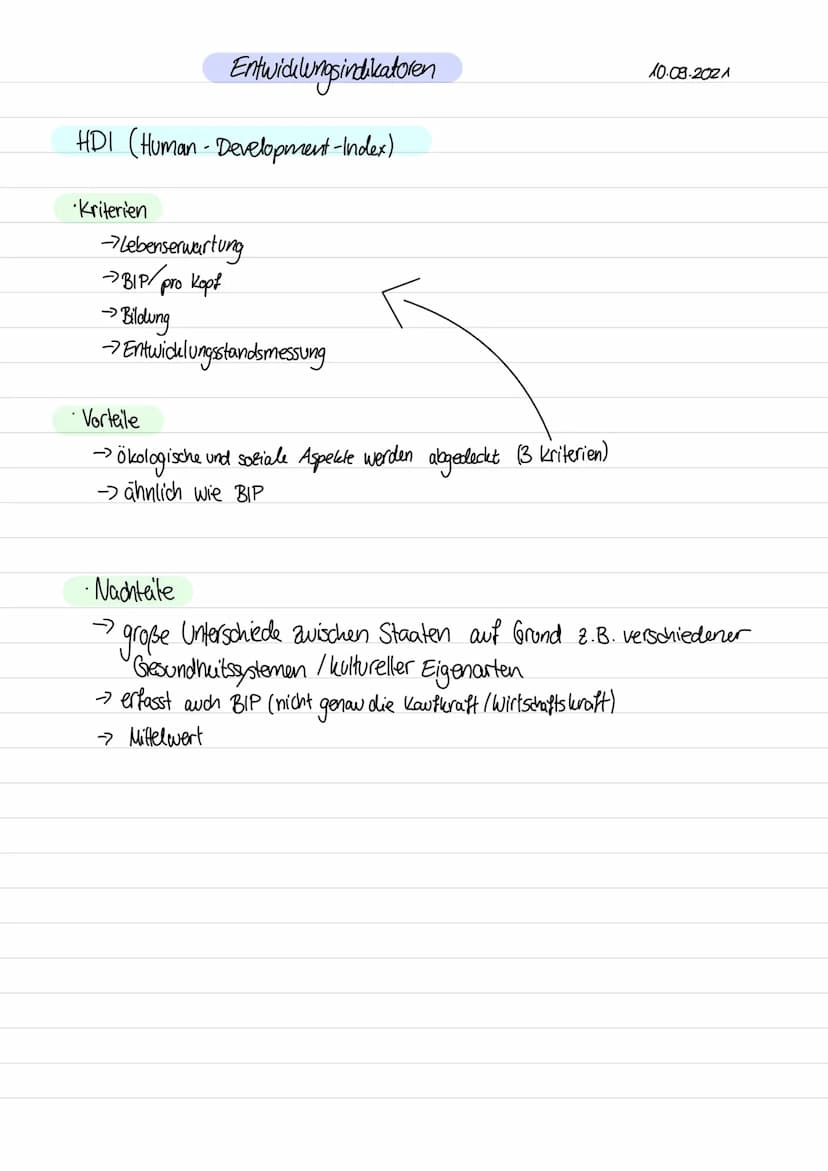 Entwicklungsindikatoren
10.09.2021
HDI (Human-Development-Index)
·Kriterien
→Lebenserwartung
→BIP/pro Kopf
→Bildung
→Entwicklungsstandsmessung
· Vorteile
→ ökologische und soziale Aspekte werden abgedeckt (3 Kriterien)
→ ähnlich wie BIP
· Nachteile
→ große Unterschiede zwischen Staaten auf Grund z.B. verschiedener
Gesundheitssystemen / kultureller Eigenarten
→ erfasst auch BIP (nicht genau die Kaufkraft/Wirtschaftskraft)
→ Mittelwert